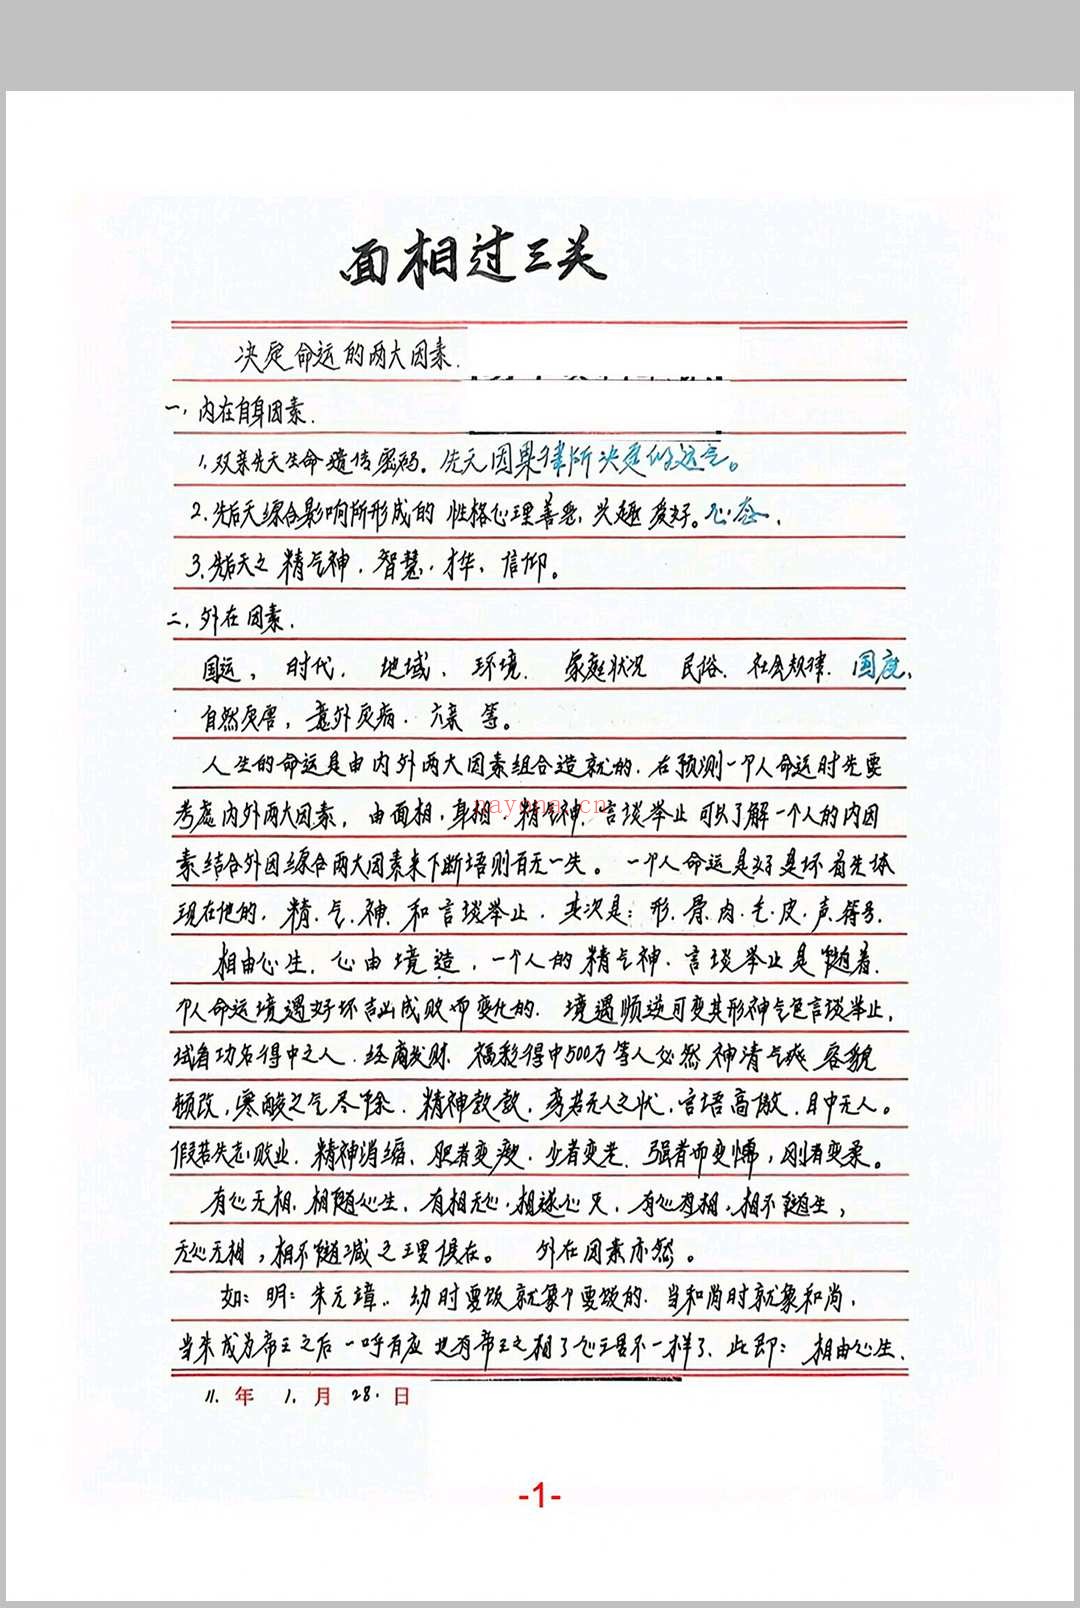 面相过三关
决定命运的两大因素.
一,内在自身因素.
1.双亲先天生命遗传密码。先天因果律所决定的运气。
2.先后天综合影响所形成的 性格心理善恶,兴趣爱好。心态、
3.先后天之 精气神.智慧.才华、信仰。
二,外在因素.
国运, 时代. 地域. 环境. 家庭状况 民俗. 社会规律. 国度,
自然灾害,意外灾病. 六亲 等。
人生的命运是由内外两大因素组合造就的.在预测一个人命运时先要
考虑内外两大因素. 由面相,身相.精气神.言谈举止 可以了解一个人的内因
素结合外因综合两大因素来下断语则百无一失。 一个人命运是好是坏首先体
现在他的.精.气.神.和 言谈举止.其次是:形.骨.肉.毛.皮.声.等等.
相由心生.心由境造.一个人的精气神.言谈举止是随着.
个人命运境遇好坏吉凶成败而变化的. 境遇顺逆可变其形神气色言谈举止.
试看功名得中之人.经商发财. 福彩得中500万等人必然神清气爽 容貌
顿改,寒酸之气尽除.精神敖敖,旁若无人之状,言语高傲.目中无人。
假若失志败业.精神消缩、肥者变瘦.少者变老.强者而变懦,刚者变柔。
有心无相.相随心生.有相无心.相遂心灭.有心有相.相不随生,
无心无相,相不随减之理俱在。 外在因素亦然。
如:明:朱元璋..幼时要饭就象个要饭的.当和尚时就象和尚.
当朱成为帝王之后一呼百应 也有帝王之相了心理不一样了.此即:相由心生.
11.年 1.月 28.日
nayona.cn
-1-